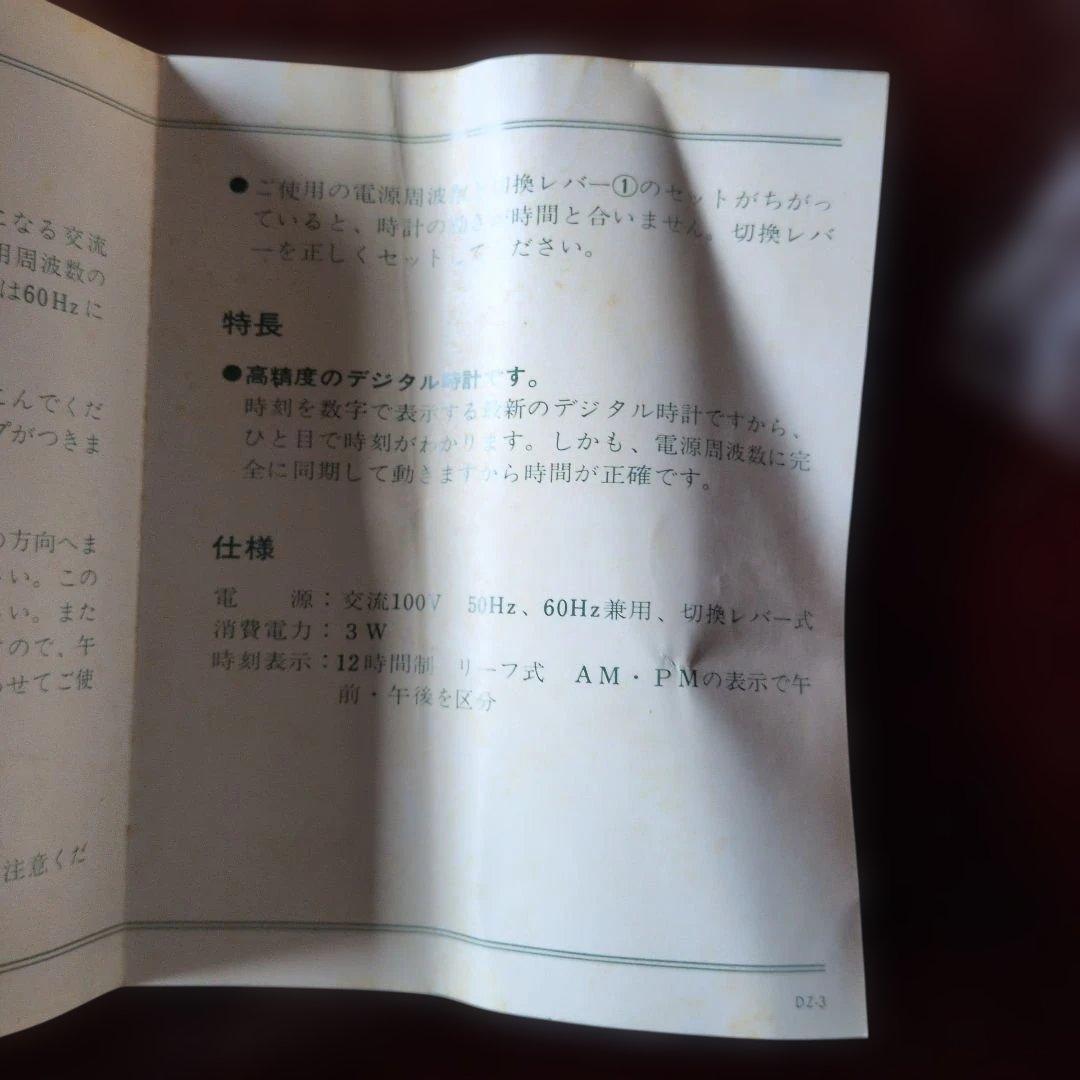 になる交流
用周波数の
は60Hzに
こんでくだ
プがつきま
の方向へま
さい。この
さい。また
すので、午
わせてご使
注意くだ
●ご使用の電源周波数と切換レバー①のセットがちがっ
ていると、時計の動きが時間と合いません。切換レバ
ーを正しくセットしてください。
特長
●高精度のデジタル時計です。
時刻を数字で表示する最新のデジタル時計ですから、
ひと目で時刻がわかります。しかも、電源周波数に完
全に同期して動きますから時間が正確です。
仕様
電　源：交流100V　50Hz、60Hz兼用、切換レバー式
消費電力：3W
時刻表示：12時間制　リーフ式　AM・PMの表示で午
前・午後を区分
DZ-3